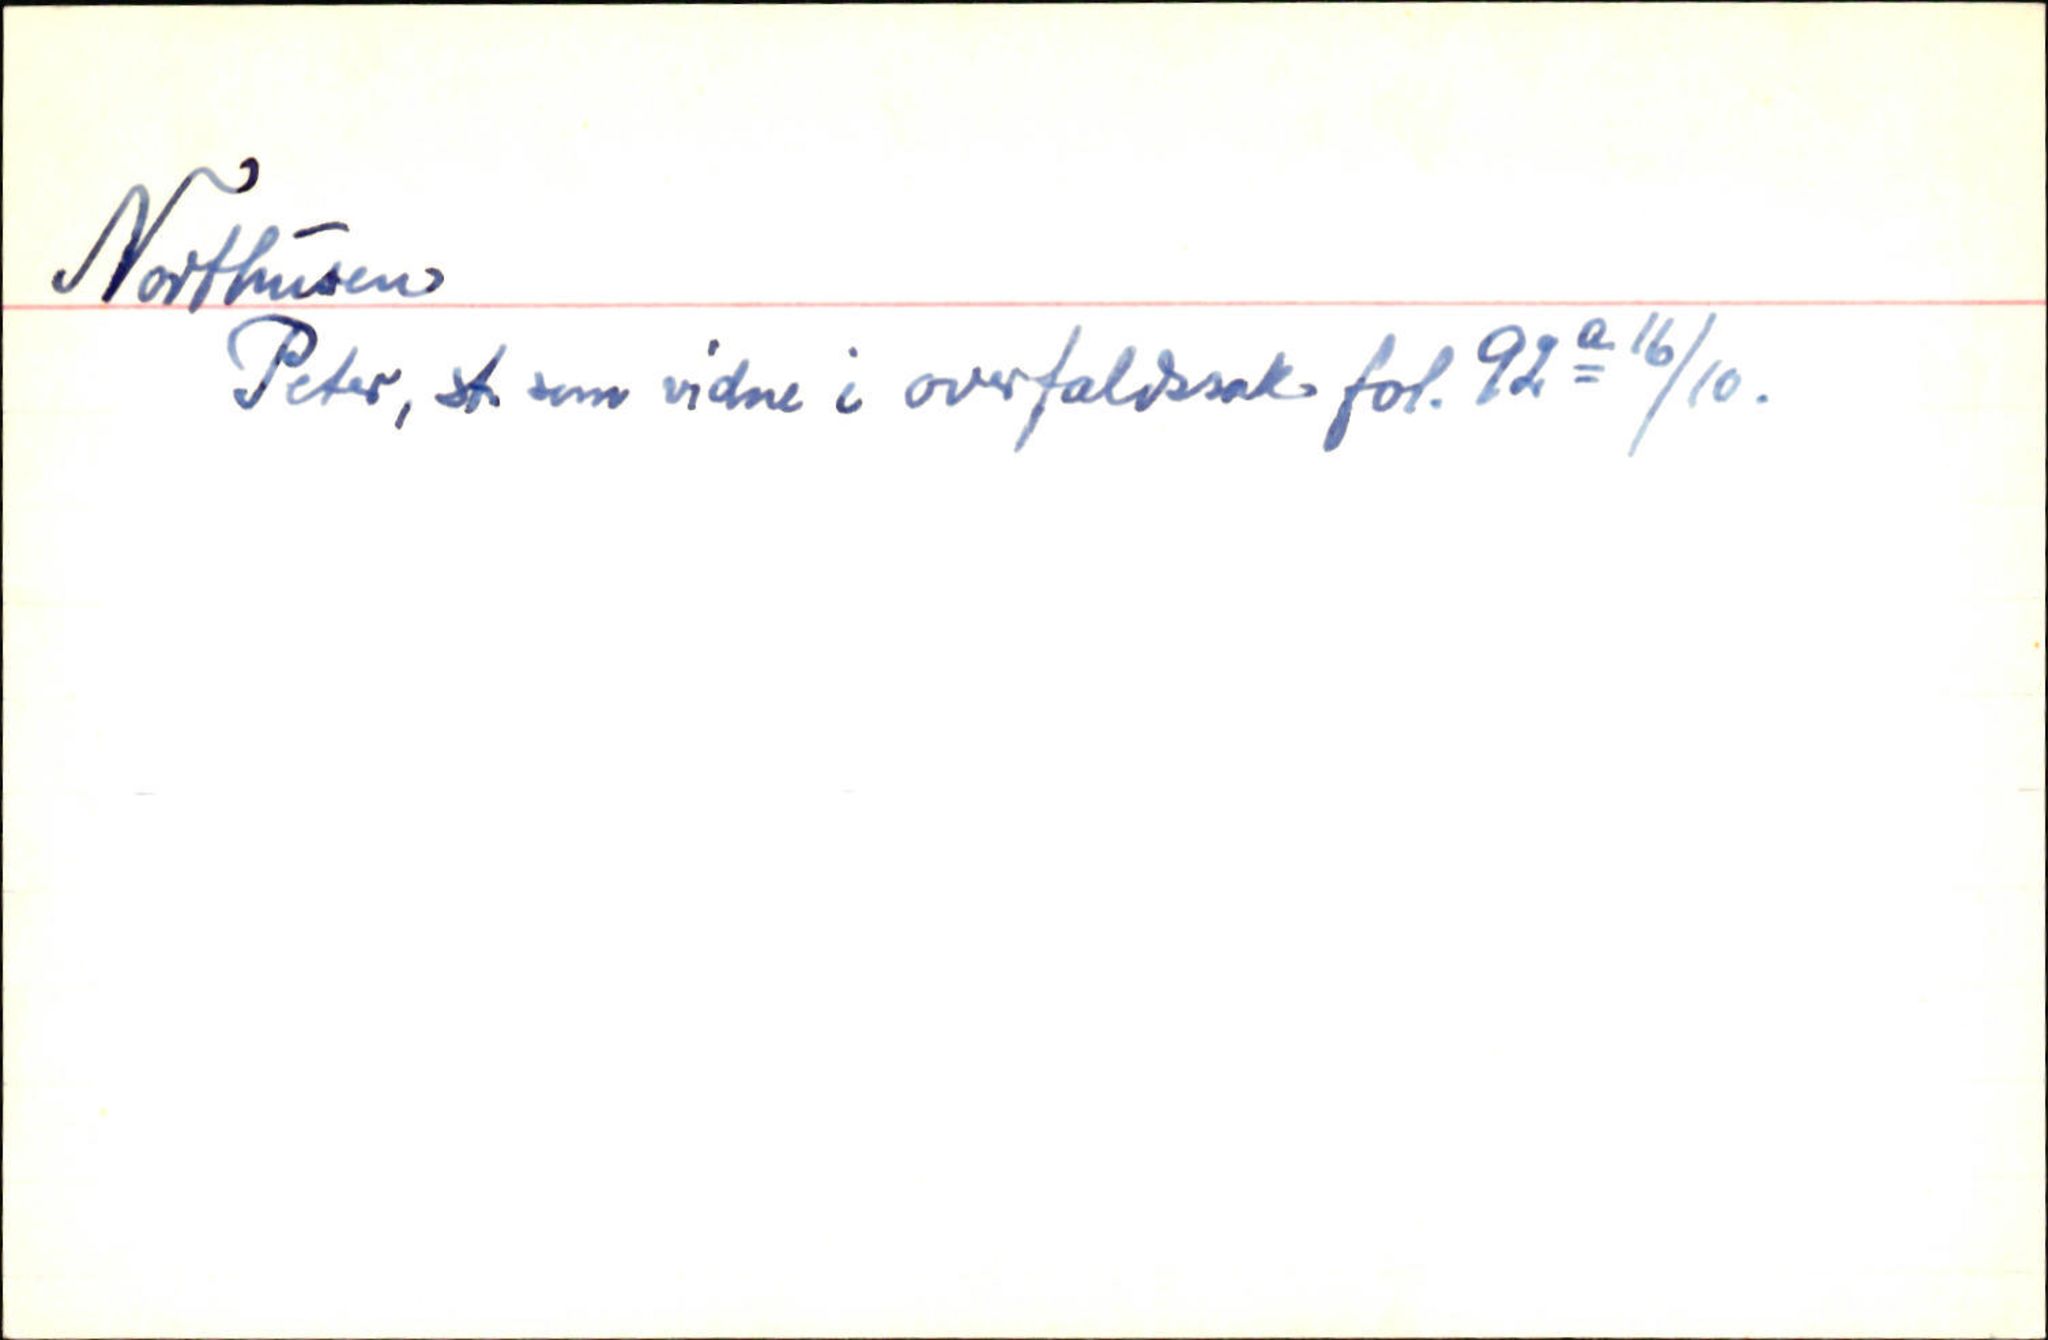 Northūsen
Peter, st. som vidne i overfaldssak fol. 92ª 16/10.